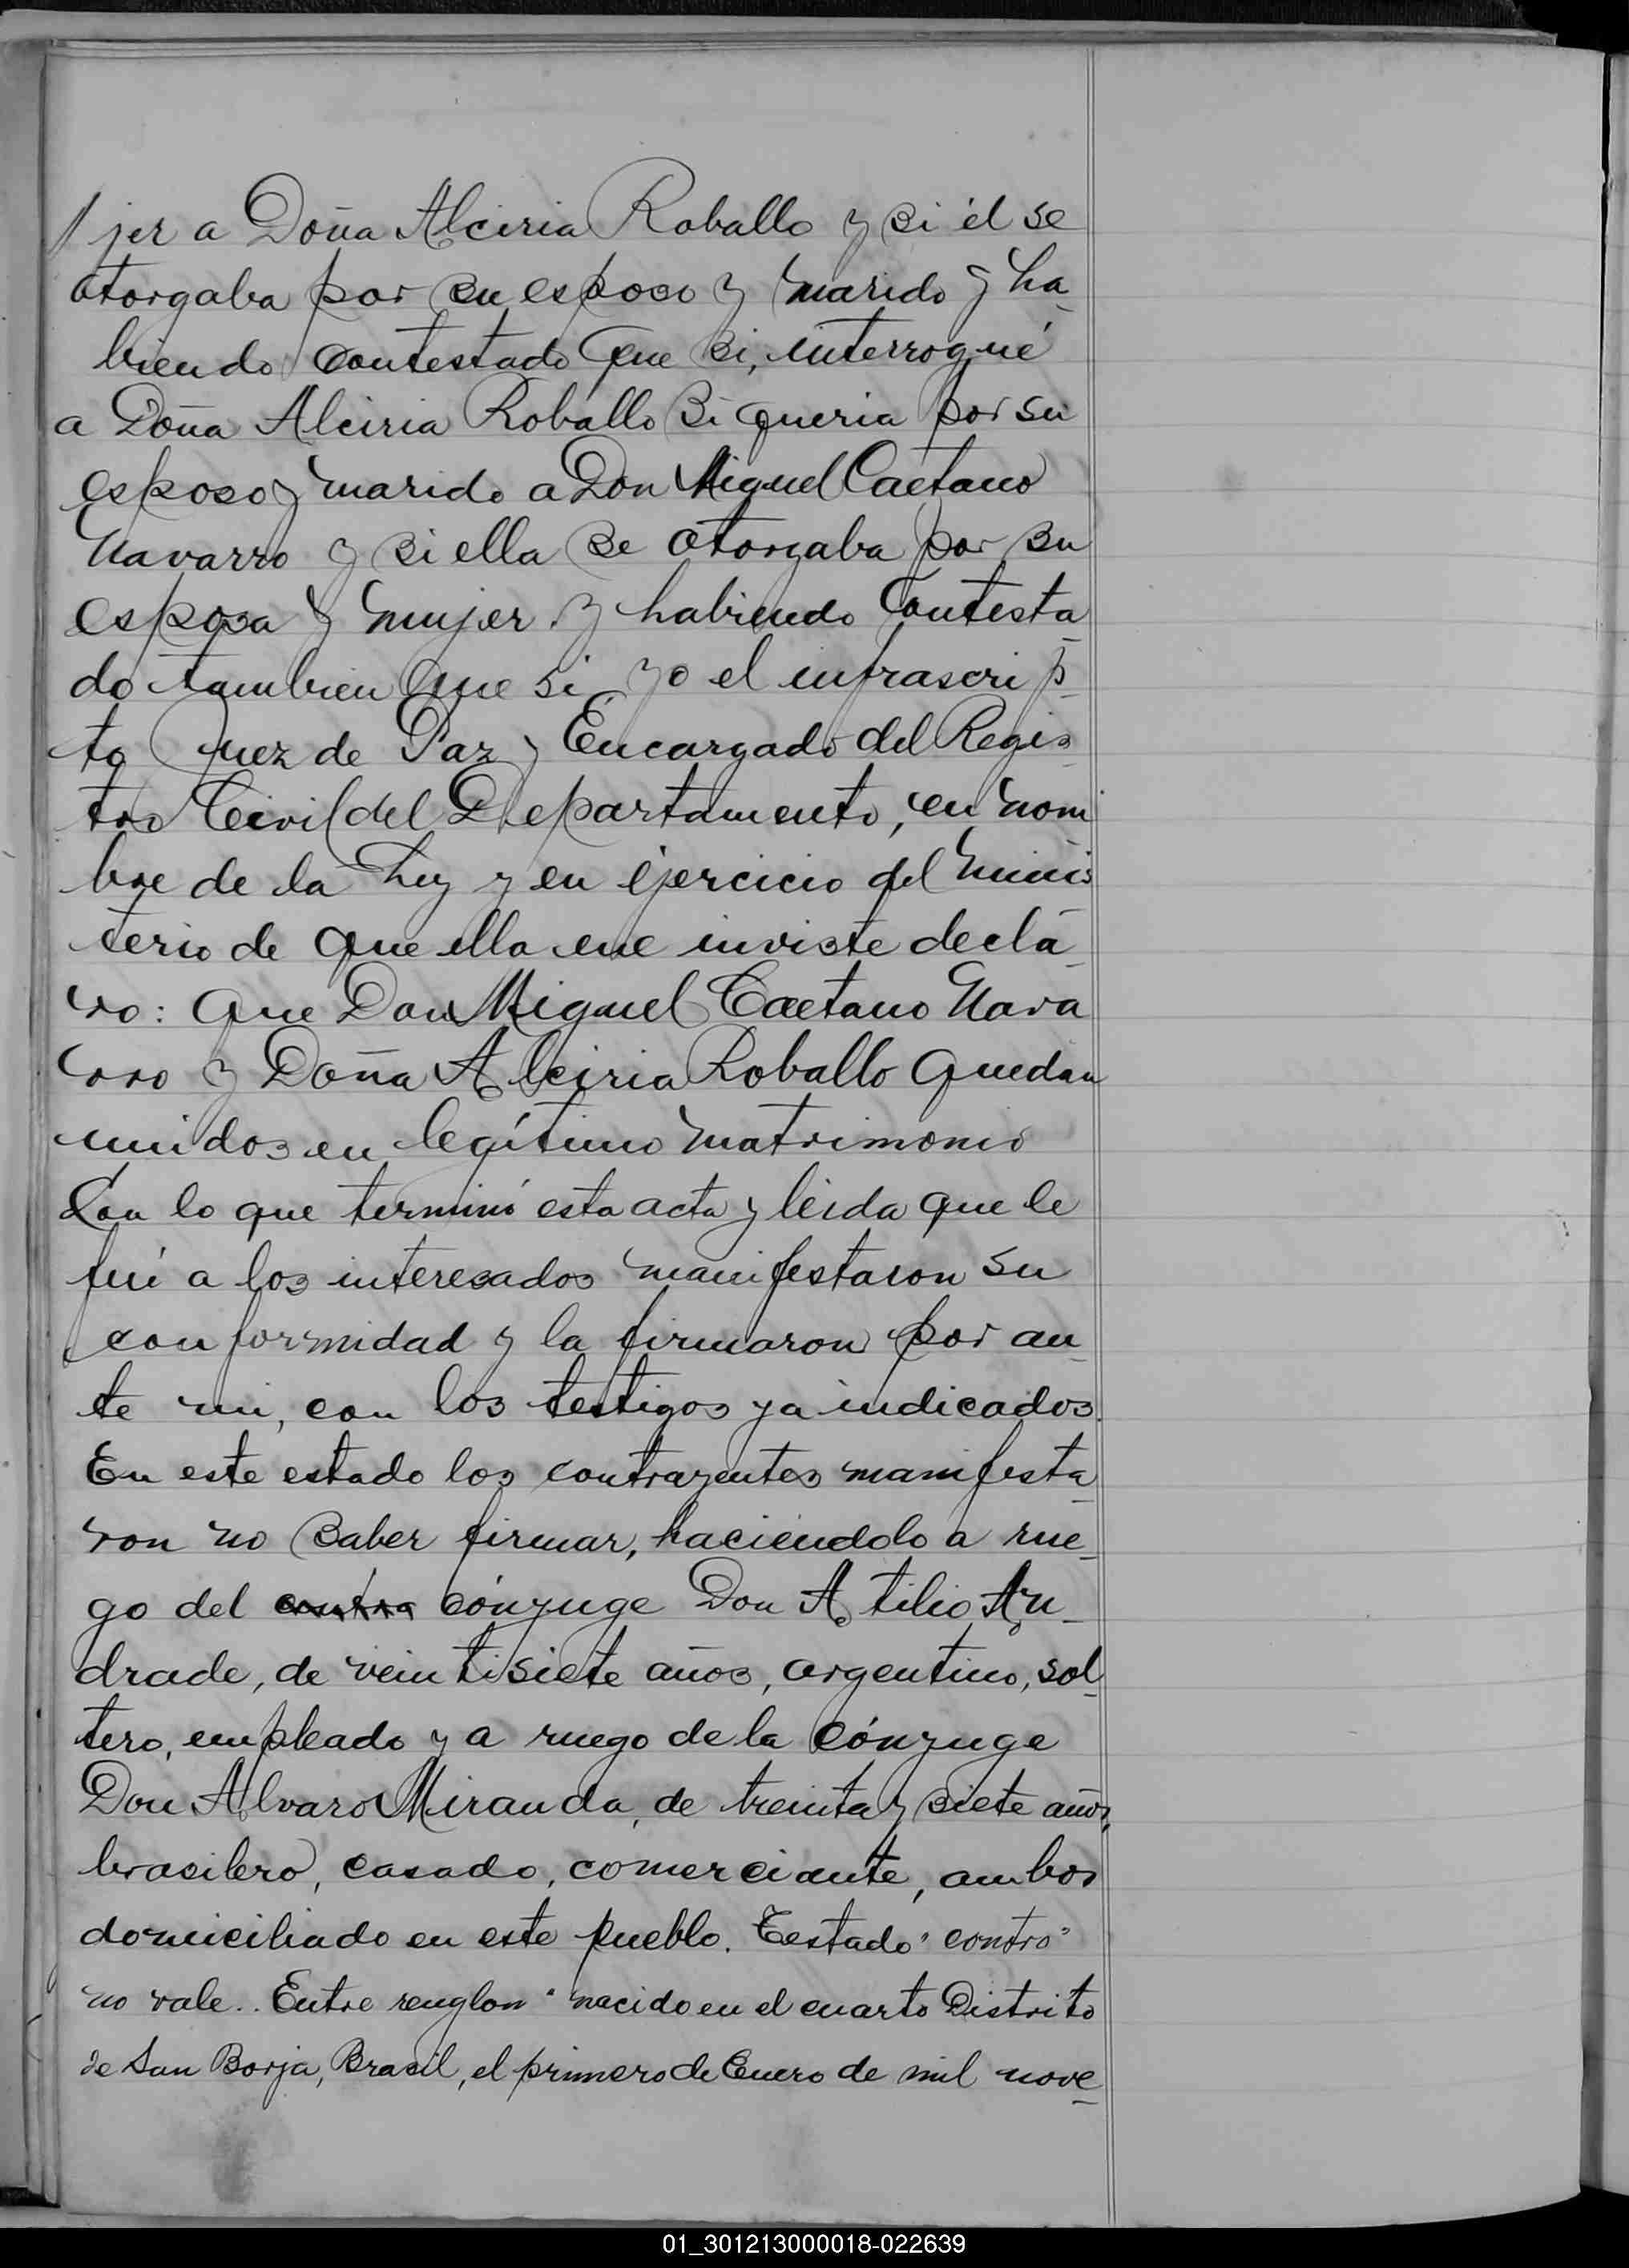 jer a Doña Alciria Roballo y si él se
otorgaba por su esposo y marido y ha-
biendo contestado que si, interrogué
a Doña Alciria Roballo si queria por su
esposo y marido a Don Miguel Caetano
Navarro y si ella se otorgaba por su
esposa y mujer. y habiendo contesta-
do tambien que si yo el infrascrip-
to Juez de Paz y Encargado del Regis-
tro Civil del Departamento, en nom
bre de la Ley y en ejercicio del minis
terio de que ella me inviste decla-
ro: que Don Miguel Caetano Nava
rro y Doña Alciria Roballo quedan
unidos en legítimo matrimonio
Con lo que terminó esta acta y leida que le
fué a los interesados manifestaron su
conformidad y la firmaron por an-
te mi, con los testigos ya indicados.
En este estado los contrayentes manifesta-
ron no saber firmar, haciéndolo a rue-
go del contra cónyuge Don Atilio An-
drade, de veintisiete años, argentino, sol-
tero, empleado y a ruego de la cónyuge
Don Alvaro Miranda, de treinta y siete años,
brasilero, casado, comerciante, ambos
domiciliado en este pueblo. Testado "contro"
no vale.. Entre renglon "nacido en el cuarto Distrito
de San Borja, Brasil, el primero de Enero de mil nove-
01_301213000018-022639